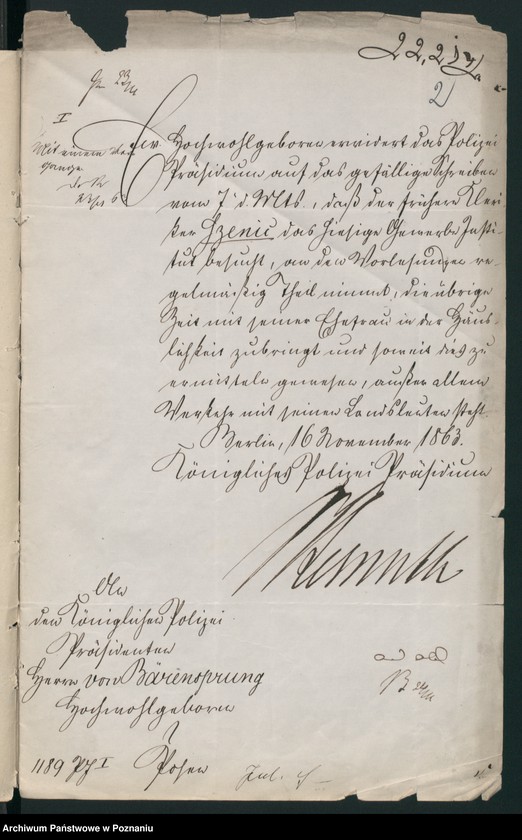 22,2
2)
I
Mit einem
Ew. Hochwohlgeboren erwidert das Polizei
Präsidium auf das gefällige Schreiben
vom 7 d. Mts., daß der frühere Kleri-
ker Szenic das hiesige Gewerbe Insti-
tut besucht, an den Vorlesungen re-
gelmäßig Theil nimmt, die übrige
Zeit mit seiner Ehefrau in der Häus-
lichkeit zubringt und soweit dies zu
ermitteln gewesen, außer allem
Verkehr mit seinen Landsleuten steht.
Berlin, 16 November 1863.
Königliches Polizei Präsidium
An
den Königlichen Polizei
Präsidenten
Herrn von Bärensprung
Hochwohlgeboren
Posen
1189 I
Archiwum Państwowe w Poznaniu